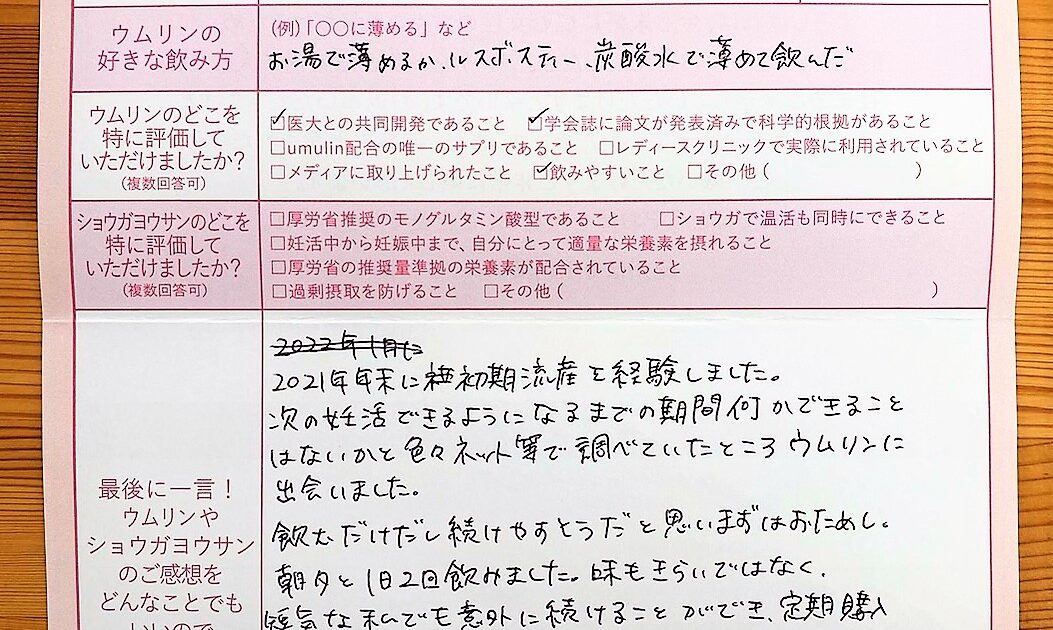 ウムリンの
好きな飲み方
(例)「〇〇に薄める」など
お湯で薄めるか、ルスボスティー、炭酸水で薄めて飲んだ
ウムリンのどこを
特に評価して
いただけましたか?
(複数回答可)
☑医大との共同開発であること ☑学会誌に論文が発表済みで科学的根拠があること
□umulin配合の唯一のサプリであること □レディースクリニックで実際に利用されていること
□メディアに取り上げられたこと ☑飲みやすいこと □その他( )
ショウガヨウサンのどこを
特に評価して
いただけましたか?
(複数回答可)
□厚労省推奨のモノグルタミン酸型であること □ショウガで温活も同時にできること
□妊活中から妊娠中まで、自分にとって適量な栄養素を摂れること
□厚労省の推奨量準拠の栄養素が配合されていること
□過剰摂取を防げること □その他( )
最後に一言!
ウムリンや
ショウガヨウサン
のご感想を
どんなことでも
いいので
2022年1月に
2021年年末に初期流産を経験しました。
次の妊活できるようになるまでの期間何かできること
はないかと色々ネット等で調べていたところウムリンに
出会いました。
飲むだけだし続けやすそうだと思いまずはおためし。
朝夕と1日2回飲みました。味もきらいではなく、
短気な私でも意外に続けることができ、定期購入